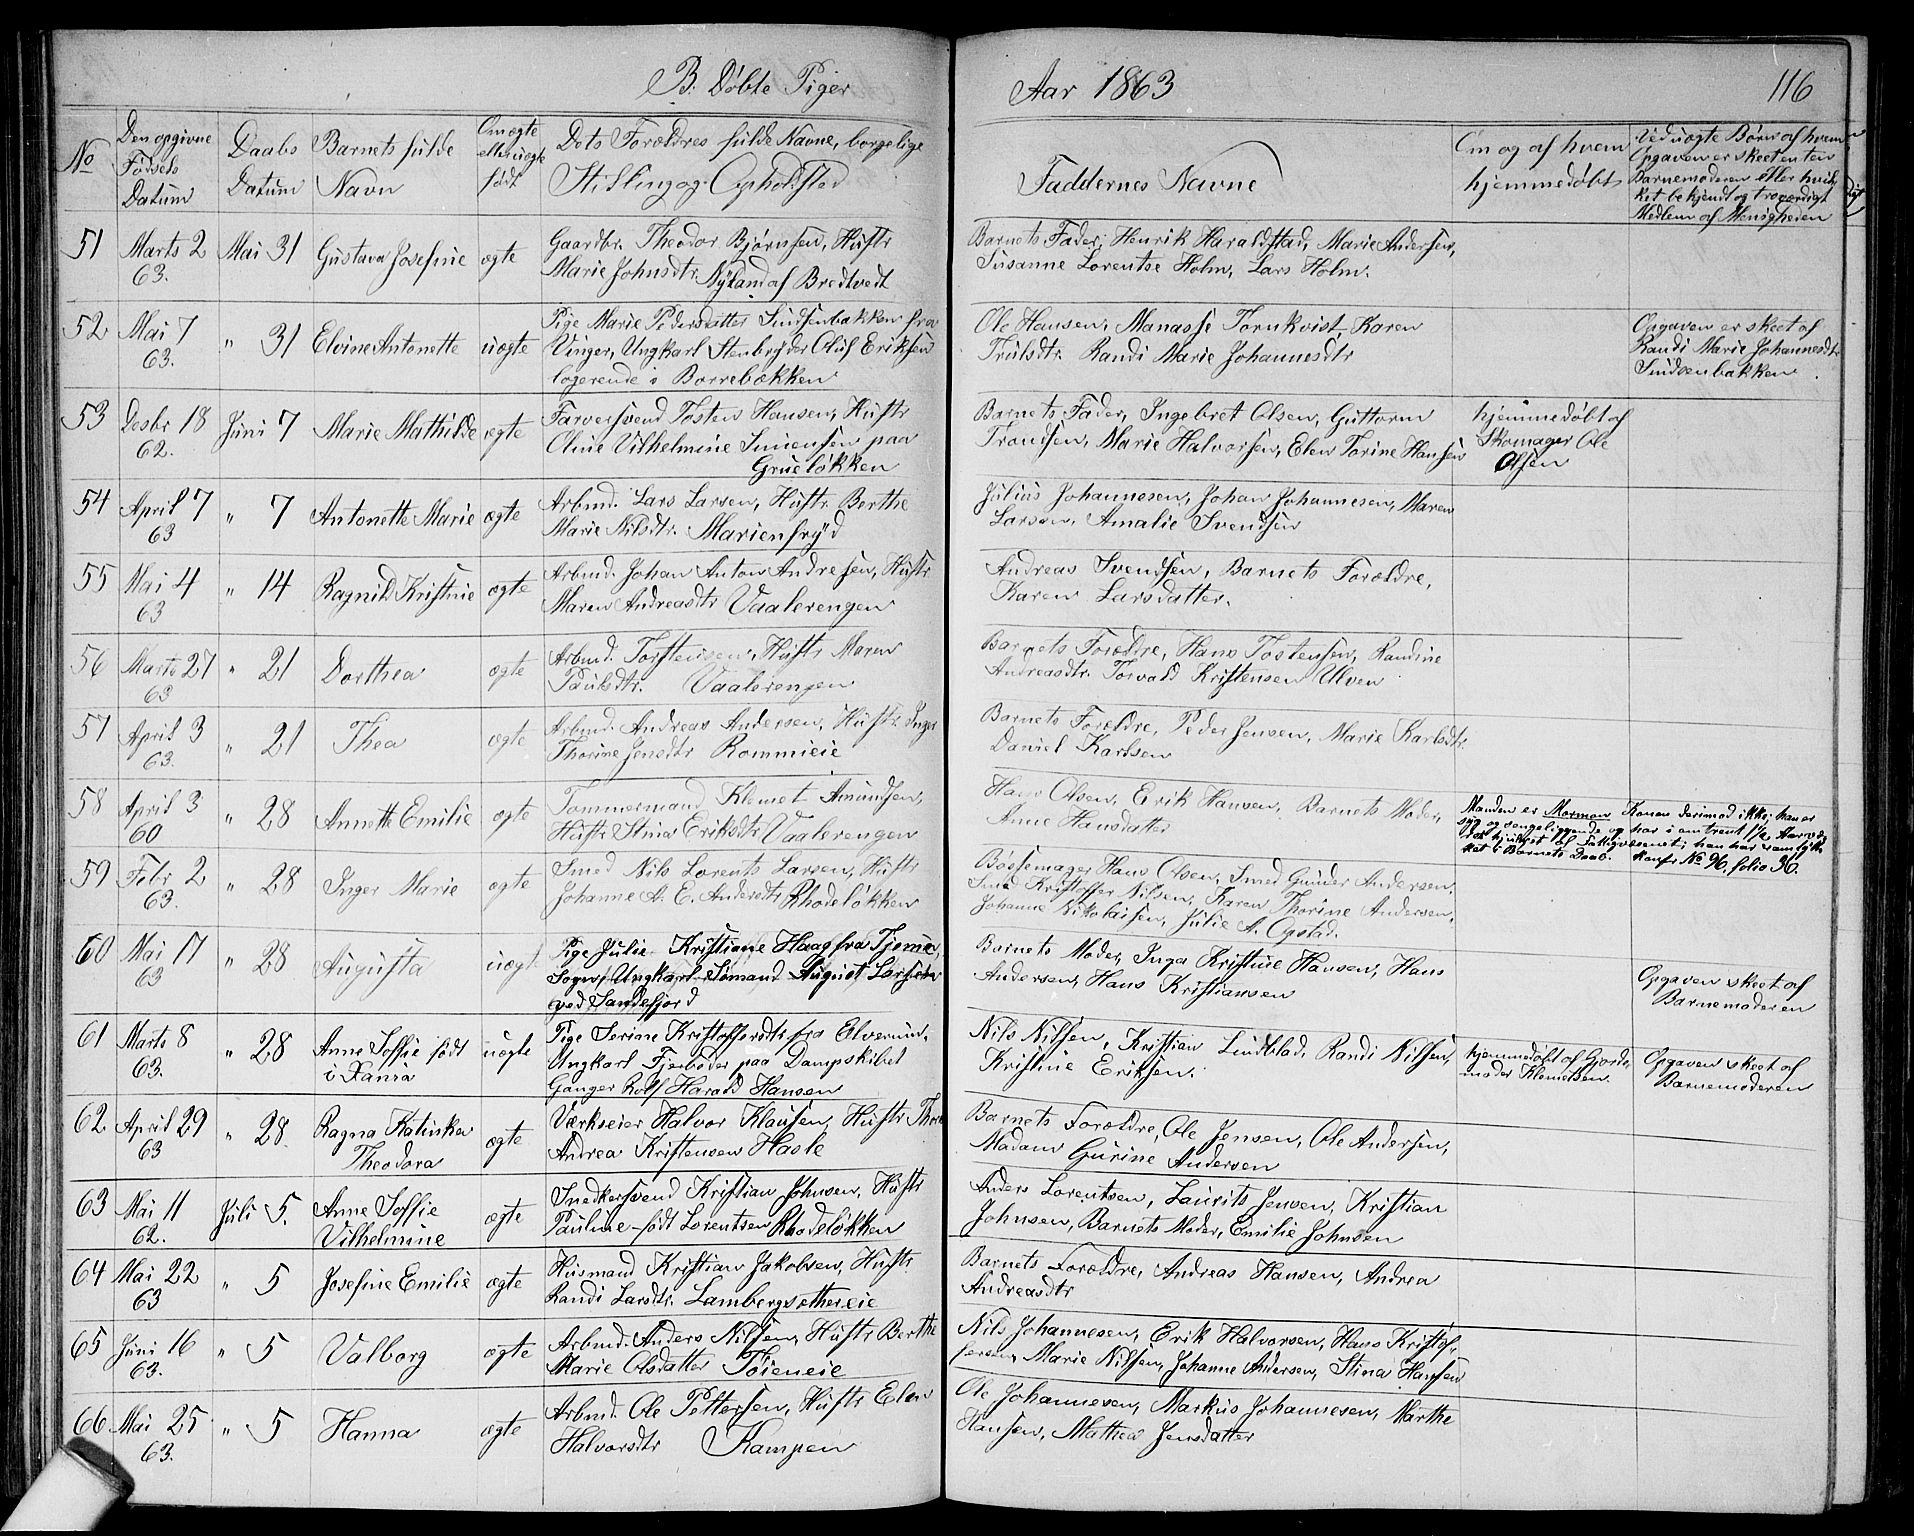 B. Døbte Piger
Aar 1863
116
No
Den opgivne Fødsels Datum
Daabs Datum
Barnets fulde Navn
Om ægte eller uægte født
Dets Forældres fulde Navne, borgelige Stilling og Opholdsted
Faddernes Navne
Om og af hvem hjemmedøbt
Ved uægte Børn af hvem Opgaven er skeet enten Barnemoderen eller hvilket bekjendt og troværdigt Medlem af Menigheden
51 Marts 2 63. Mai 31 Gustava Josefine ægte
Gaardbr. Theodor Bjørnsen, Hustr
Marie Johnsdtr. Nyland af Bredtvedt
Barnets Fader, Henrik Haraldstad, Marie Andersen,
Susanne Lorentse Holm, Lars Holm.
52 Mai 7 63. " 31 Elvine Antonette uægte
Pige Marie Pedersdatter Sindsenbakken fra
Vinger, Ungkarl Stenbryder Oluf Eriksen
logerende i Borrebækken
Ole Hansen, Manasse Tornkvist, Karen
Trulsdtr. Randi Marie Johannesdtr
Opgaven er skeet af
Randi Marie Johannesdtr
Sindsenbakken.
53 Desbr 18 62. Juni 7 Marie Mathilde ægte
Farversvend Tosten Hansen, Hustr
Oline Vilhelmine Simensen paa
Grueløkken
Barnets Fader, Ingebret Olsen, Guttorm
Trondsen, Marie Halvorsen, Elen Torine Hansen
hjemmedøbt af
Skomager Ole
Olsen
54 April 7 63 " 7 Antonette Marie ægte
Arbmd. Lars Larsen, Hustr. Berthe
Marie Nilsdtr. Marienfryd
Julius Johannesen, Johan Johannesen, Maren
Larsen, Amalie Svendsen
55 Mai 4 63 " 14 Ragnild Kristine ægte
Arbmd. Johan Anton Andresen, Hustr
Maren Andreasdtr Vaalerengen
Andreas Svendsen, Barnets Forældre,
Karen Larsdatter.
56 Marts 27 63 " 21 Dorthea ægte
Arbmd. Torstensen, Hustr Maren
Paulsdtr. Vaalerengen
Barnets Forældre, Hans Tostensen, Randine
Andreasdtr. Torvald Kristensen Ulven
57 April 3 63. " 21 Thea ægte
Arbmd. Andreas Andersen, Hustr. Inger
Thorine Jensdtr Rommieie
Barnets Forældre, Peder Jensen, Marie Karlsdtr.
Daniel Karlsen
58 April 3 60 " 28 Annette Emilie ægte
Tømmermand Klemet Amundsen,
Hustr Stina Eriksdtr Vaalerengen
Hans Olsen, Erik Hansen, Barnets Moder,
Anne Hansdatter
Manden er Mormon Konen derimod ikke; han er
syg og sengeliggende og har i omtrent 1½ Aar væ-
ret hjulpet af Fattigvæsenet; han har samtyk-
ket i Barnets Daab. konfr. No 96, folio 36.
59 Febr 2 63. " 28 Inger Marie ægte
Smed Nils Lorents Larsen, Hustr
Johanne A. E. Andersdtr Rhodeløkken
Bøssemager Hans Olsen, Smed Gunder Andersen.
Smed Kristoffer Nilsen, Karen Thorine Andersen,
Johanne Nikolaisen, Julie A. Opstad.
60 Mai 17 63 " 28 Augusta uægte
Pige Julie Kristiane Haag fra Tjømø
Sogn, Ungkarl Sømand August Larsen
ved Sandefjord
Barnets Moder, Inga Kristine Hansen, Hans
Andersen, Hans Kristiansen
Opgaven skeet af
Barnemoderen
61 Marts 8 63. " 28 Anne Soffie født i Xania uægte
Pige Serine Kristoffersdtr fra Elverum,
Ungkarl Fjerbøder paa Dampskibet
Ganger Rolf Harald Hansen
Nils Nilsen, Kristian Lindblad, Randi Nilsen,
Kristine Eriksen.
hjemmedøbt af Gjorde-
moder Klemetsen.
Opgaven skeet af
Barnemoderen
62 April 29 63 " 28 Ragna Katinka Theodora ægte
Værkseier Halvor Klausen, Hustr Thora
Andrea Kristensen Hasle
Barnets Forældre, Ole Jensen, Ole Andersen,
Madam Gurine Andersen
63 Mai 11 62. Juli 5. Anne Soffie Vilhelmine ægte
Snedkersvend Kristian Johnsen, Hustr
Pauline født Lorentsen Rhodeløkken
Anders Lorentsen, Laurits Jensen, Kristian
Johnsen, Barnets Moder, Emilie Johnsen
64 Mai 22 63 " 5 Josefine Emilie ægte
Husmand Kristian Jakobsen, Hustr
Randi Larsdtr. Lambergsæthereie
Barnets Forældre, Andreas Hansen, Andrea
Andreasdtr
65 Juni 16 63. " 5 Valborg ægte
Arbmd. Anders Nilsen, Hustr Berthe
Marie Olsdatter Tøieneie
Nils Johannesen, Erik Halvorsen, Hans Kristof-
fersen, Marie Nilsen, Johanne Andersen, Stina Hansen
66 Mai 25 63. " 5 Hanna ægte
Arbmd. Ole Pettersen, Hustr Elen
Halvorsdtr Kampen
Ole Johannesen, Markus Johannesen, Marthe
Hansen, Mathea Jensdatter